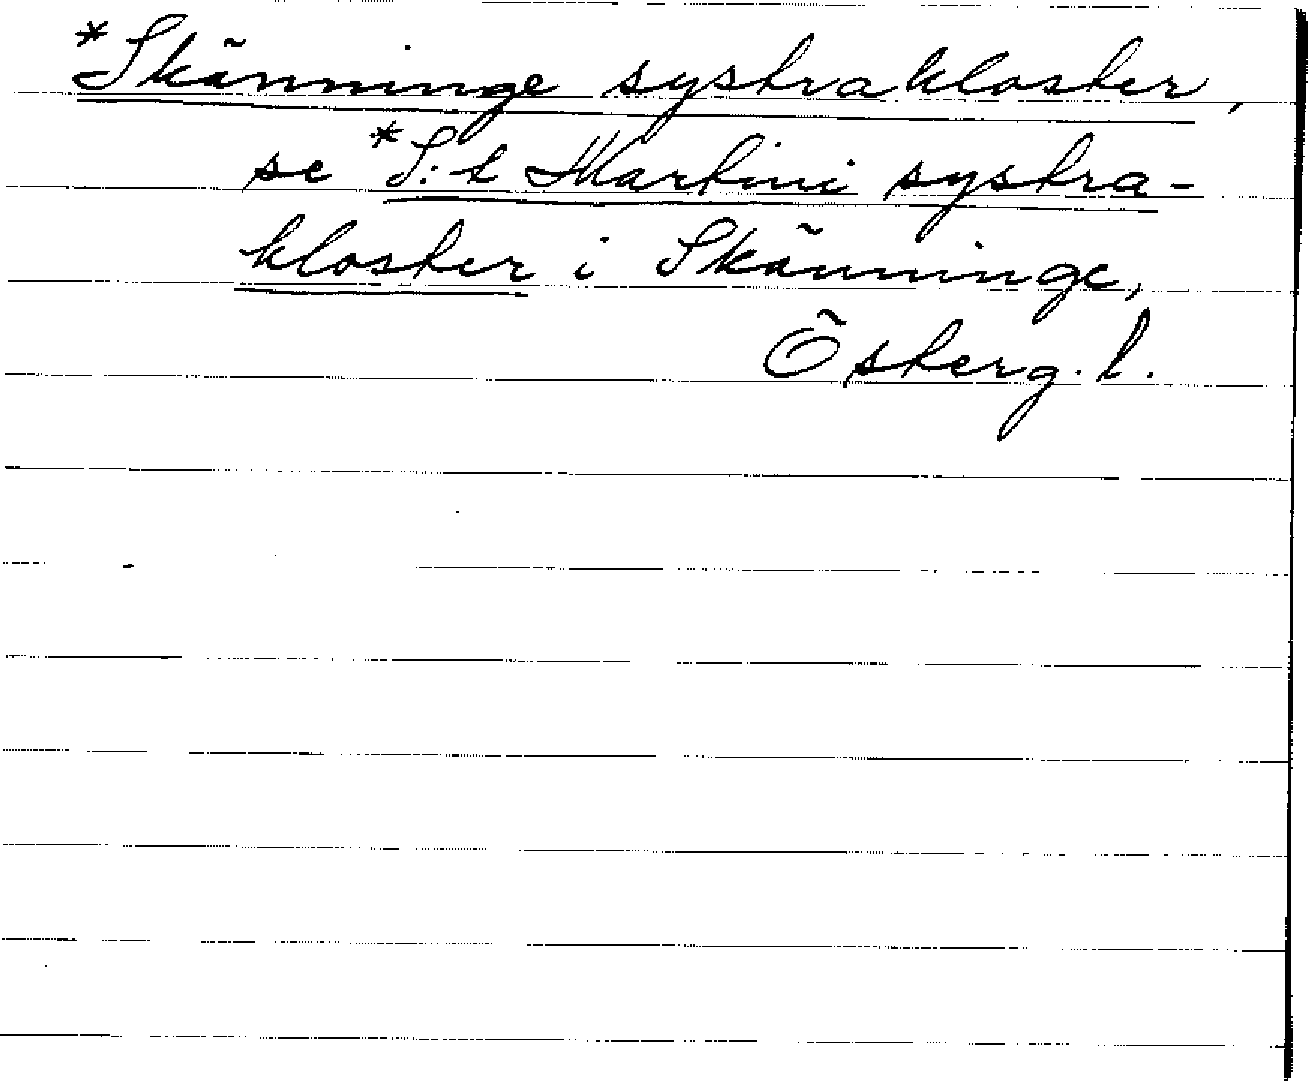 *Skänninge systrakloster,
se *S:t Martini systra-
kloster i Skänninge,
Österg. l.